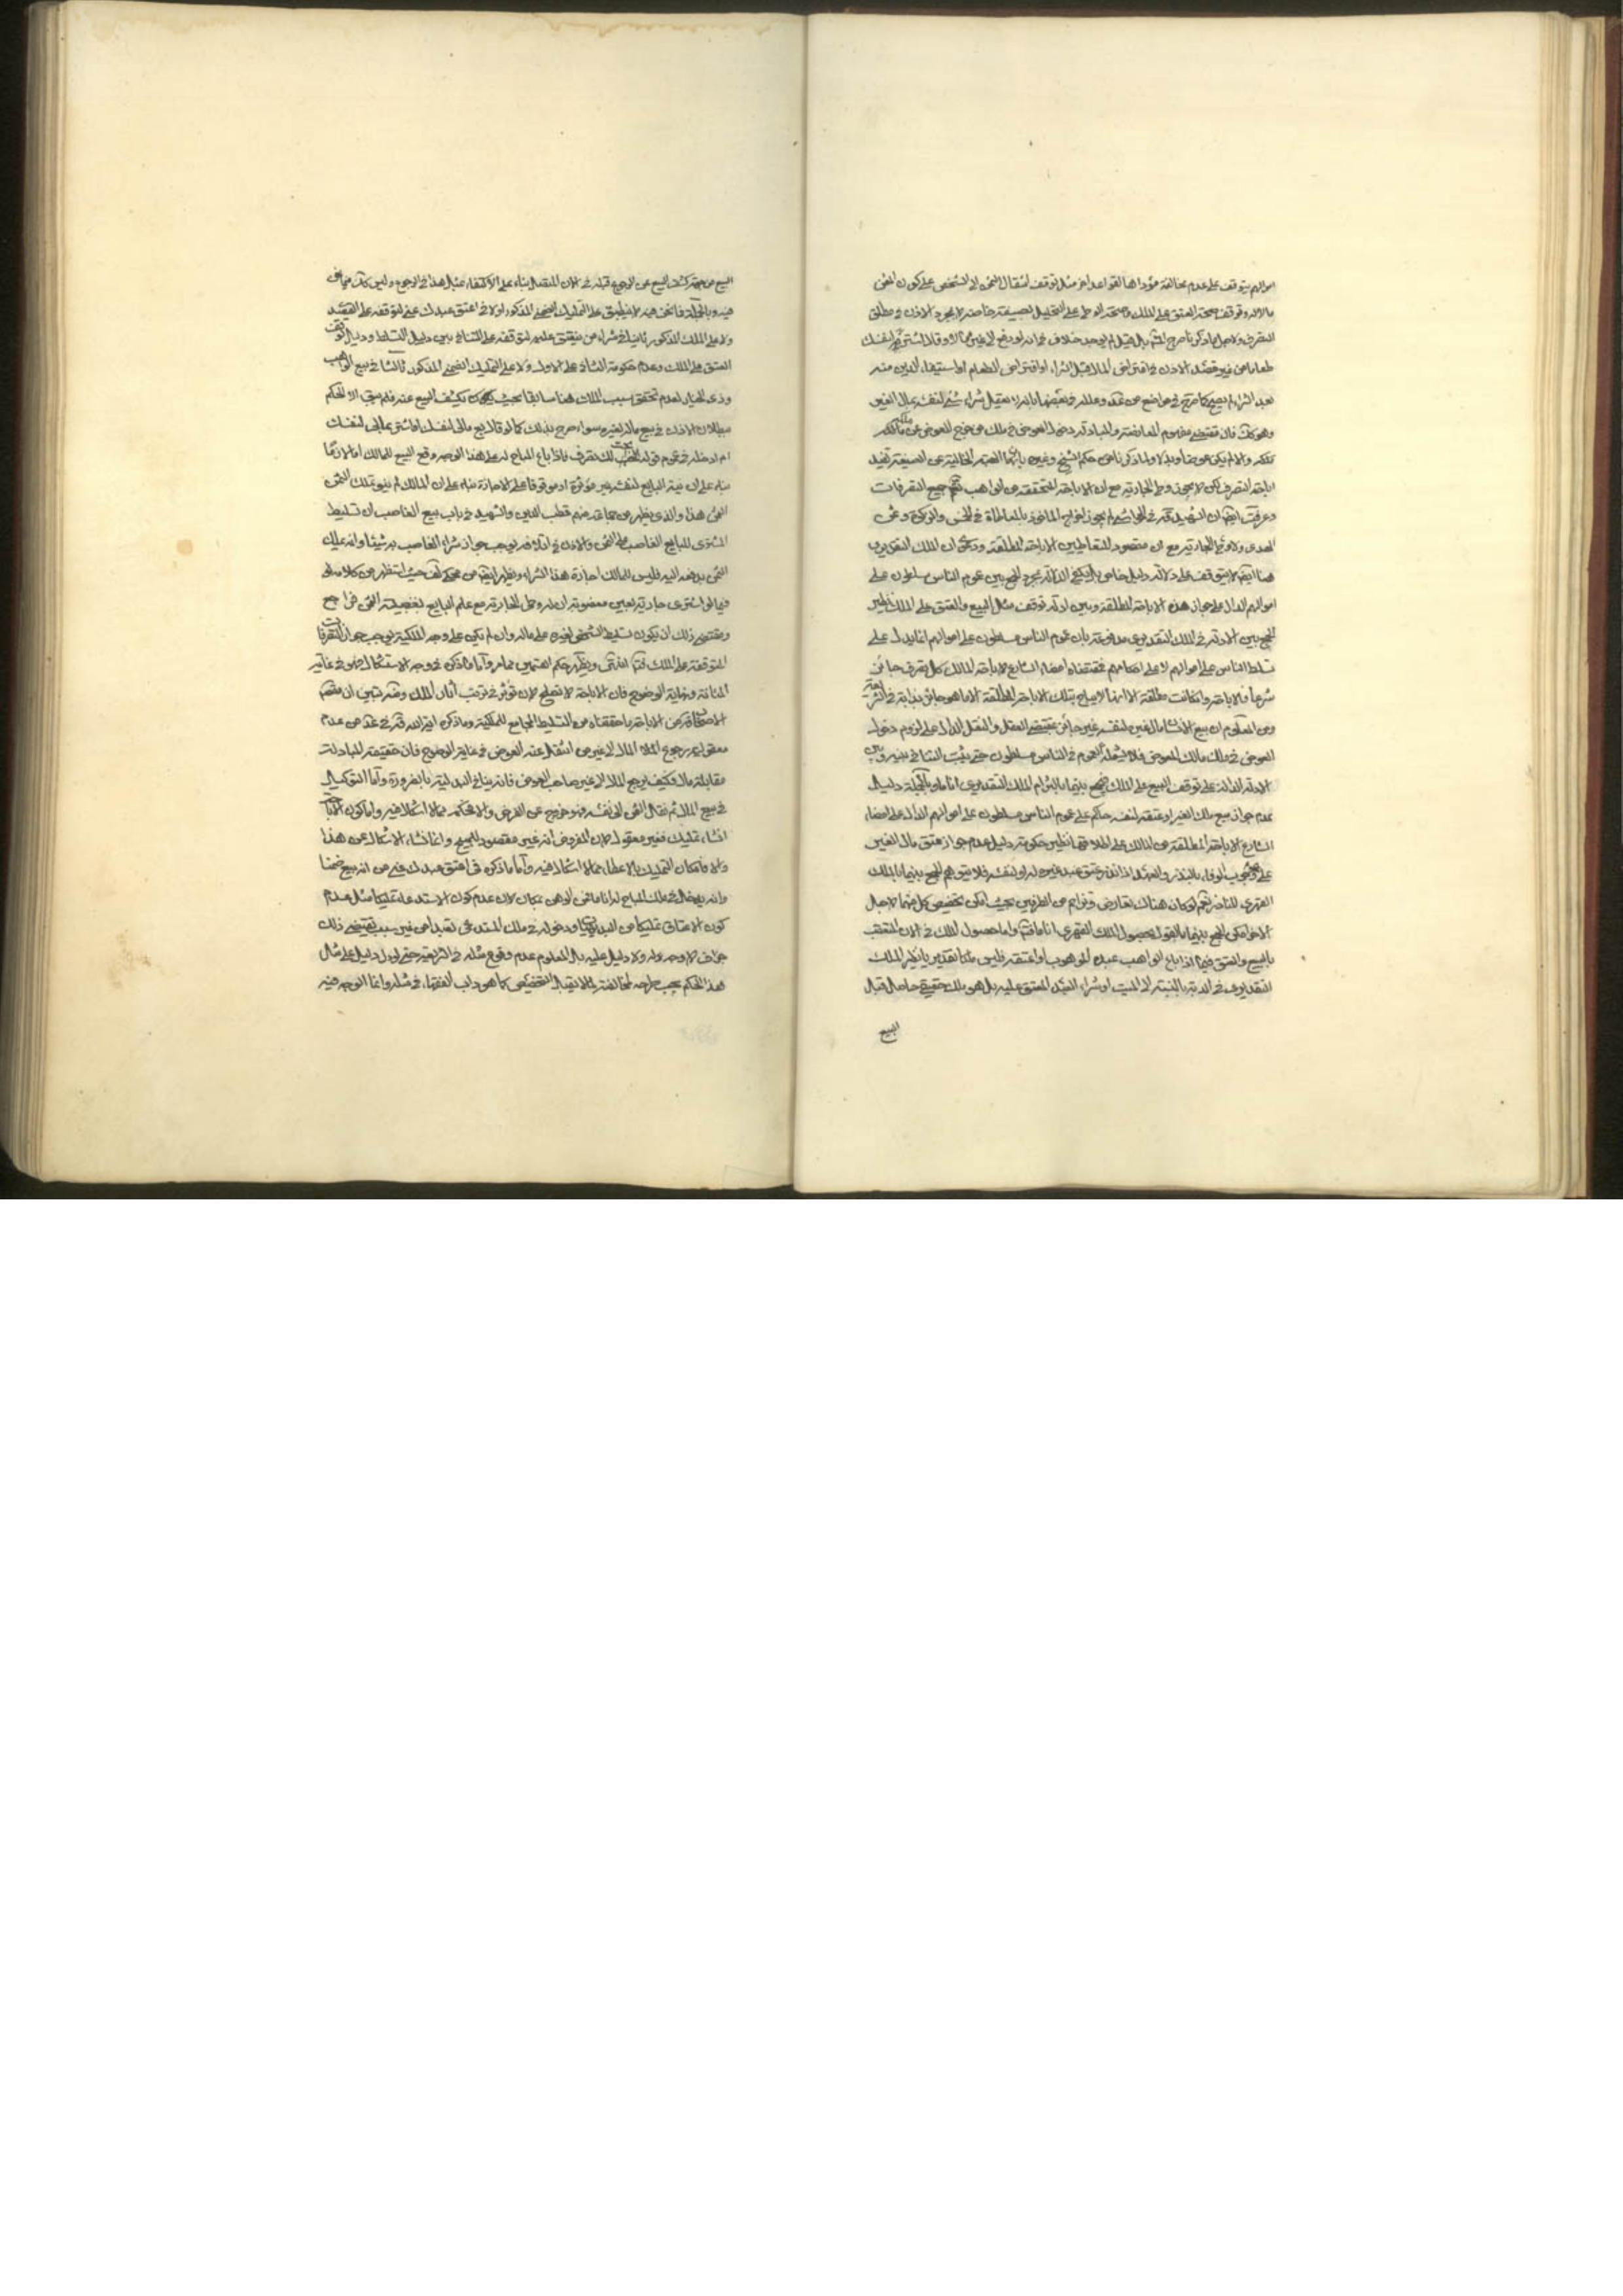 اموالهم يتوقف على عدم مخالفة مؤداها لقواعد اخر مثل توقف انتقال الثمن الى الشخص على كون المثمن
مالا له وتوقف صحة العتق على الملك وصحة الوطى على التحليل بصيغة خاصة لا بمجرد الاذن في مطلق
التصرف ولاجل ما ذكرنا صرح المشهور بل قيل لم يوجد خلاف في انه لو دفع الى غيره مالا وقال اشتر به لنفسك
طعاما من غير قصد الاذن في اقتراض المال قبل الشراء او اقتراض الطعام او استيفاء الدين منه
بعد الشراء لم يصح كما صرح في مواضع من عد وعلله في بعضها بانه لا يعقل شراء شئ لنفسه بمال الغير
وهو كك فان مقتضى مفهوم المعاوضة والمبادلة دخول العوض في ملك من خرج المعوض عن ملكه
والا لم يكن عوضا وبدلا ولما ذكرنا من حكم الشيخ وغيره بان الهبة الخالية عن الصيغة تفيد
اباحة التصرف لكن لا يجوز وطى الجارية مع ان الاباحة المتحققة من الواهب تعم جميع التصرفات
وعرفت ايضا ان الشهيد قده في الحواشي لم يجوز اخراج الماخوذ بالمعاطاة في الخمس والزكوة وثمن
الهدى ولا وطى الجارية مع ان مقصود المتعاطيين الاباحة المطلقة ودعوى ان الملك التقديرى
هنا ايضا لا يتوقف على دلالة دليل خاص بل يكفى الدلالة بمجرد الجمع بين عموم الناس مسلطون على
اموالهم الدال على جواز هذه الاباحة المطلقة وبين ادلة توقف مثل البيع والعتق على الملك نظير
الجمع بين الادلة في الملك التقديرى مدفوعة بان عموم الناس مسلطون على اموالهم انما يدل على
تسلط الناس على اموالهم لا على احكامهم فمقتضاه امضاء الشارع لاباحة المالك كل تصرف جائز
شرعا فالاباحة وان كانت مطلقة الا انه لا يباح بتلك الاباحة المطلقة الا ما هو جائز بذاته في الشريعة
ومن المعلوم ان بيع الانسان مال غيره لنفسه غير جائز بمقتضى العقل والنقل الدال على لزوم دخول
العوض في ملك مالك المعوض فلا يشمله العموم في الناس مسلطون حتى يثبت التنافي بينه وبين
الادلة الدالة على توقف البيع على الملك فيجمع بينهما بالتزام الملك التقديرى آنا ما وبالجملة دليل
عدم جواز بيع ملك الغير او عتقه لنفسه حاكم على عموم الناس مسلطون على اموالهم الدال على امضاء
الشارع الاباحة المطلقة من المالك على اطلاقها نظير حكومة دليل عدم جواز عتق مال الغير
على وجوب الوفاء بالنذر والعهد اذا نذر عتق عبد غيره له او لنفسه فلا يتوهم الجمع بينهما بالملك
القهرى للناذر نعم لو كان هناك تعارض وتزاحم من الطرفين بحيث امكن تخصيص كل منهما لاجل
الاخر امكن الجمع بينهما بالقول بحصول الملك القهرى آنا ما فتأمل واما حصول الملك في الآن المتعقب
بالبيع والعتق فيما اذا باع الواهب عبده الموهوب او اعتقه فليس ملكا تقديريا نظير الملك
التقديرى في الدية بالنسبة الى الميت او شراء العبد المعتق عليه بل هو ملك حقيقى حاصل قبل
البيع
البيع من جهة كشف البيع عن الرجوع قبله في الآن المتصل بناء على الاكتفاء بمثل هذا في الرجوع وليس كك فيما نحن
فيه وبالجملة فما نحن فيه لا ينطبق على التمليك الضمنى المذكور اولا في اعتق عبدك عنى لتوقفه على القصد
ولا على الملك المذكور ثانيا في شراء من ينعتق عليه لتوقفه على التنافي بين دليل التسلط ودليل توقف
العتق على الملك وعدم حكومة الثانى على الاول ولا على التمليك الضمنى المذكور ثالثا في بيع الواهب
وذى الخيار لعدم تحقق سبب الملك هنا سابقا بحيث يكشف البيع عنه فلم يبق الا الحكم
ببطلان الاذن في بيع ماله لغيره سواء صرح بذلك كما لو قال بع مالى لنفسك او اشتر بمالى لنفسك
ام ادخله في عموم قوله ابحت لك كل تصرف فاذا باع المباح له على هذا الوجه وقع البيع للمالك اما لازما
بناء على ان نية البايع لنفسه غير مؤثرة او موقوفا على الاجازة بناء على ان المالك لم ينو تملك الثمن
هذا والذى يظهر من جماعة منهم قطب الدين والشهيد في باب بيع الغاصب ان تسليط
المشترى للبايع الغاصب على الثمن والاذن في اتلافه يوجب جواز شراء الغاصب به شيئا وانه يملك
الثمن بدفعه اليه فليس للمالك اجازة هذا الشراء ويظهر ايضا من محكى لف حيث استظهر من كلامه
فيما لو اشترى جارية بعين مغصوبة ان له وطى الجارية مع علم البايع بغصبية الثمن فراجع
ومقتضى ذلك ان يكون تسليط الشخص لغيره على ماله وان لم يكن على وجه الملكية يوجب جواز التصرفات
المتوقفة على الملك فتأمل وسيأتى توضيحه في مسألة البيع الفضولى انشاء الله واما ما ذكره في وجه الاستشكال فهو في غاية
المتانة ونهاية الوضوح فان الاباحة لا تصلح لان تؤثر في ترتب آثار الملك وقد تبين ان مقصودهم
من الاباحة ما حققناه من التسليط الجامع للملكية وما ذكره اعزه الله قده في عد من عدم
معقولية رجوع المال الى غير من انتقل عنه العوض في غاية الوضوح فان حقيقة المبادلة
مقابلة مال فكيف يرجع المال الى غير صاحب العوض فانه ينافي البدلية بالضرورة واما التوكيل
في بيع المال ثم نقل الثمن الى نفسه فهو خروج عن الفرض والا فحكمه مما لا اشكال فيه واما كون الاباحة
انشاء تمليك فغير معقول لان المفروض انه غير مقصود للمبيح وانما نشاء الاشكال عن هذا
والا فامكان التمليك بالاعطاء مما لا اشكال فيه واما ما ذكره في اعتق عبدك عنى من انه بيع ضمنا
وانه يدخل في ملك المباح له آنا ما فمن الوهن بمكان لان عدم كون الاستدعاء تمليكا مثل عدم
كون الاعتاق تمليكا من البديهيات ودخوله في ملك المستدعى تعبدا من غير سبب يقتضى ذلك
جزاف لا وجه له ولا دليل عليه بل المعلوم عدم وقوع مثله في الشريعة حتى لو دل دليل على مثل
هذا الحكم يجب طرحه لمخالفته لما لا يقبل التخصيص كما هو داب الفقهاء في مثله وانما الوجه فيه